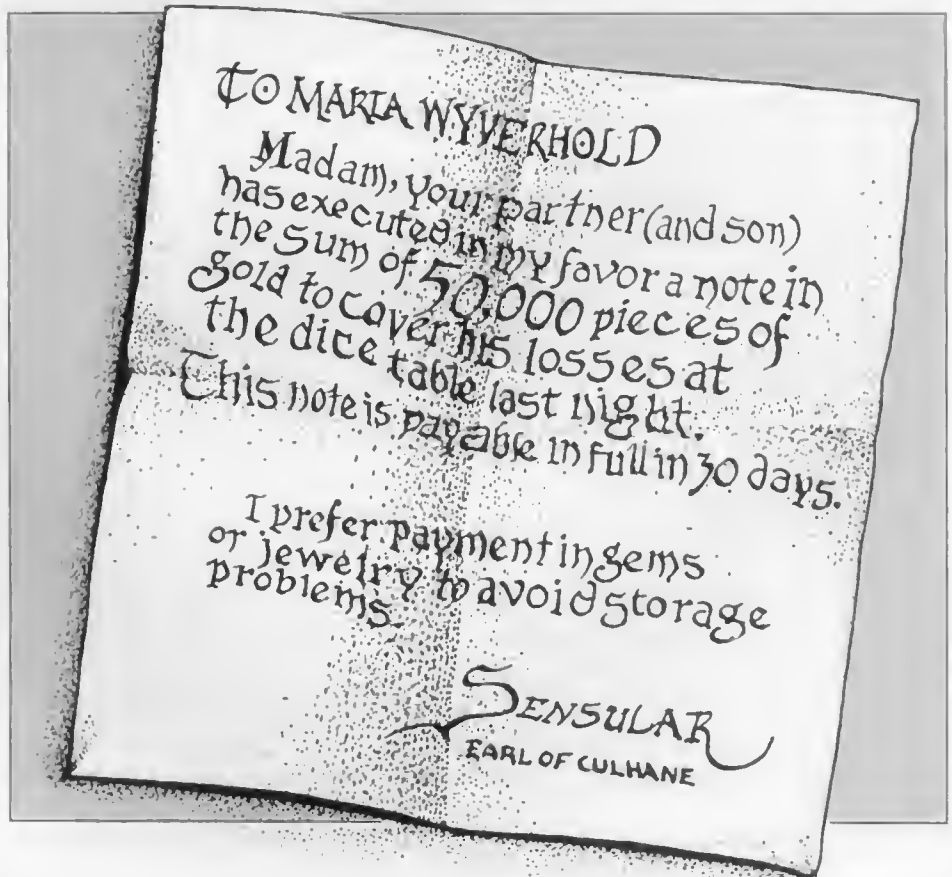 TO MARIA WYVERHOLD
Madam, your partner (and son)
has executed in my favor a note in
the sum of 50,000 pieces of
gold to cover his losses at
the dice table last night.
This note is payable in full in 30 days.
I prefer payment in gems
or jewelry to avoid storage
problems.
SENSULAR
EARL OF CULHANE